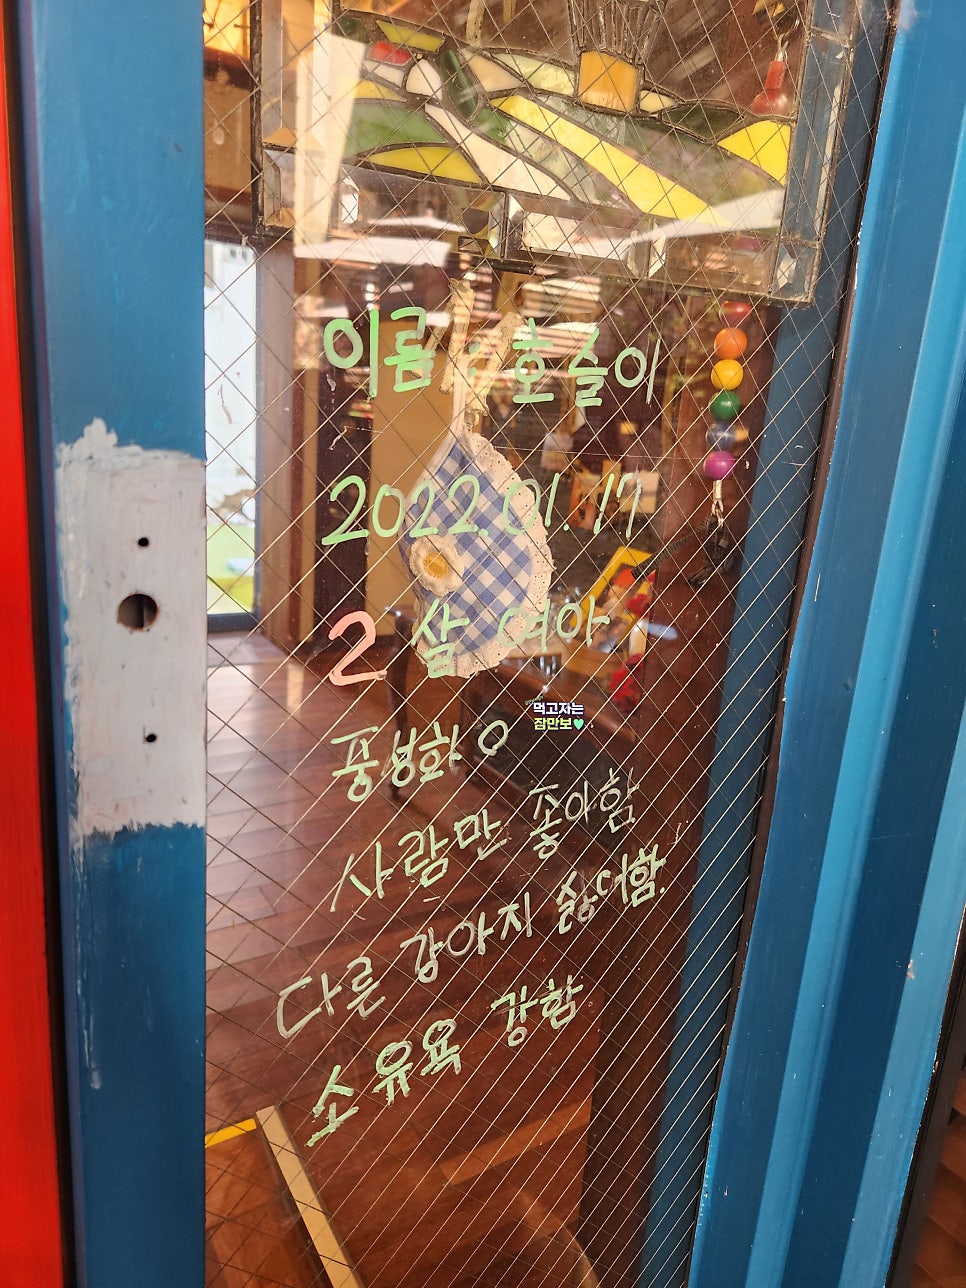 이름 : 호슬이
2022.01.17
2살 여아
먹고자는
잠만보💚
풍성화 O
사람만 좋아함
다른 강아지 싫어함.
소유욕 강함